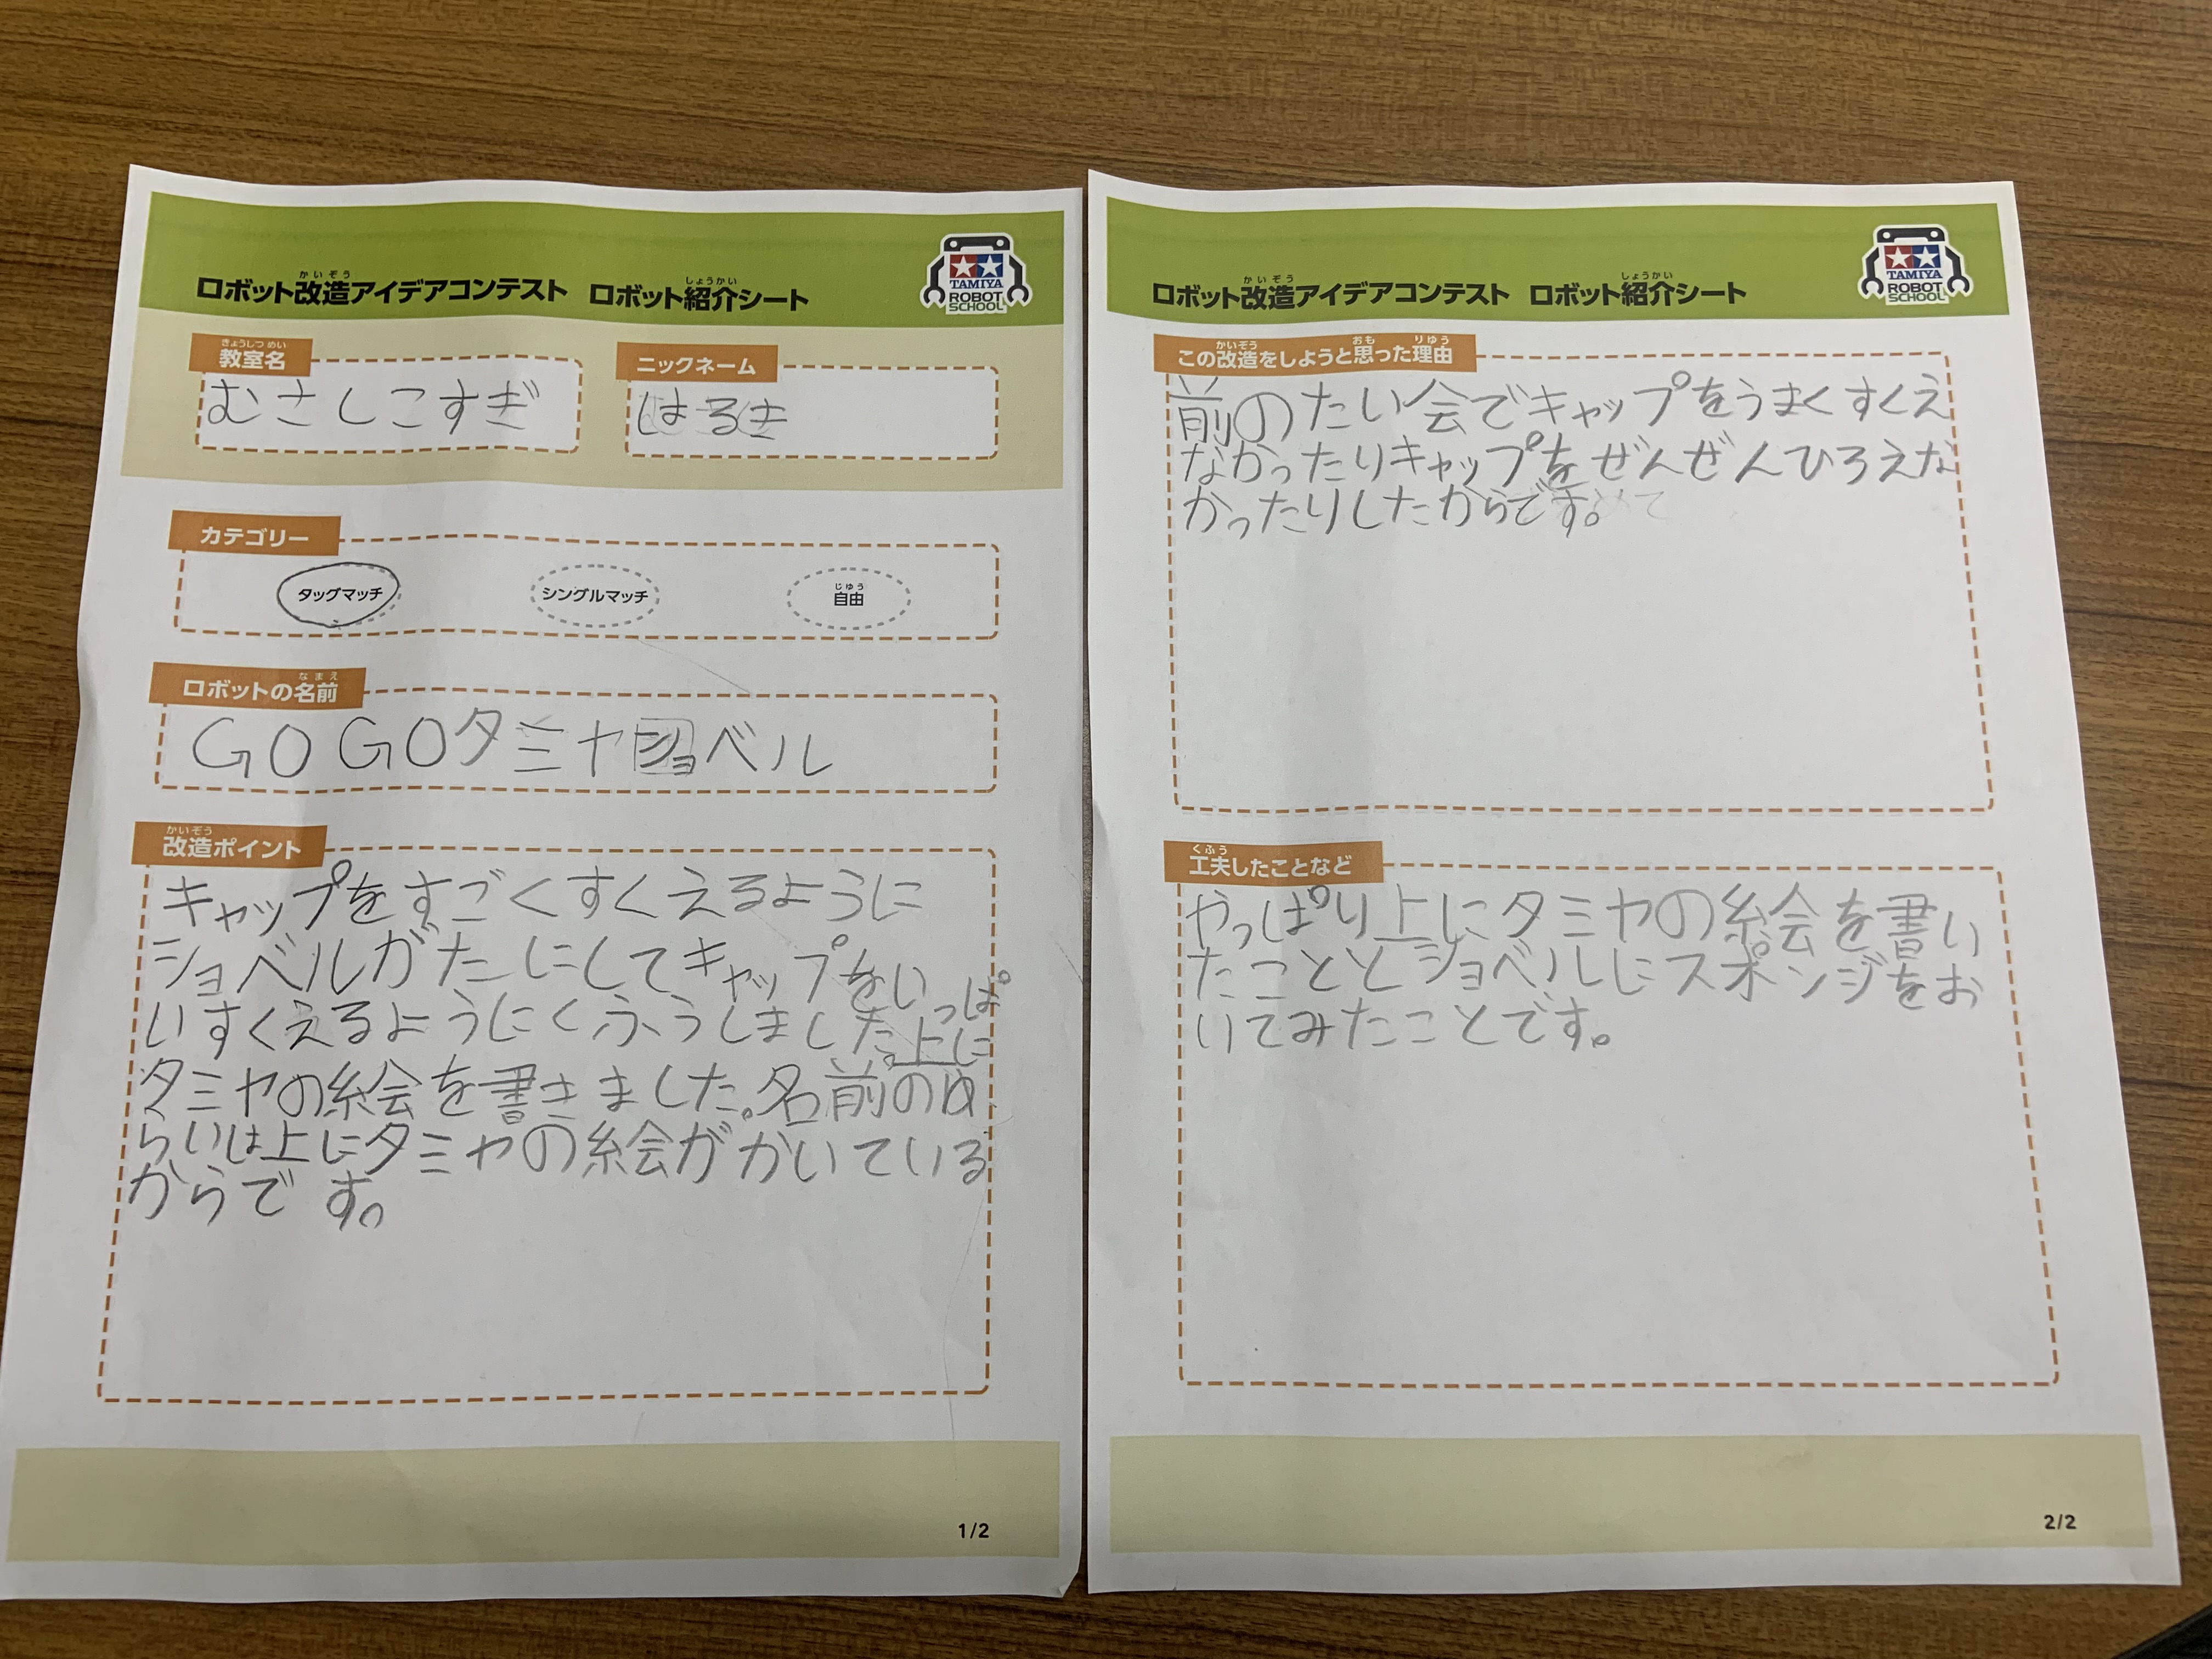 ロボット改造アイデアコンテスト ロボット紹介シート
かいぞう
しょうかい
TAMIYA
ROBOT
SCHOOL
きょうしつ めい
教室名
むさしこすぎ
ニックネーム
はるき
カテゴリー
タッグマッチ
シングルマッチ
じゆう
自由
なまえ
ロボットの名前
GOGOタミヤショベル
かいぞう
改造ポイント
キャップをすごくすくえるように
ショベルがたにしてキャップをいっぱ
いすくえるようにくふうしました。上に
タミヤの絵を書きました。名前のゆ
らいは上にタミヤの絵がかいている
からです。
1/2
ロボット改造アイデアコンテスト ロボット紹介シート
かいぞう
しょうかい
TAMIYA
ROBOT
SCHOOL
かいぞう おも りゆう
この改造をしようと思った理由
前のたい会でキャップをうまくすくえ
なかったりキャップをぜんぜんひろえな
かったりしたからです。
くふう
工夫したことなど
やっぱり上にタミヤの絵を書い
たこととショベルにスポンジをお
いてみたことです。
2/2